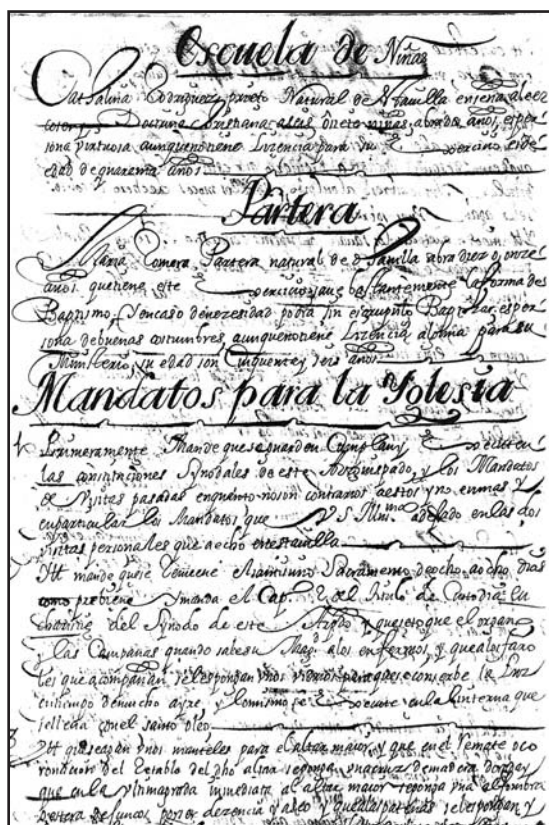 Escuela de Niñas
Catalina Rodriguez prieto Natural de esta uilla enseña a leer
coser y Doctrina Cristiana a seis o siete niñas, abra dos años, es per
sona virtuosa aunque no tiene Lizencia para su Exercicio es de
edad de quarenta años
Partera
Maria Romera Partera natural de esta uilla abra diez o onze
años que tiene este Exercicio saue bastantemente la forma de
Baptismo y en caso de nezesidad podra sin escrupulo Baptizar, es per
sona de buenas costumbres, aunque no tiene Lizencia alguna para su
Ministerio, su edad son Cinquenta y seis años
Mandatos para la Yglesia
1 Primeramente Mando que se guarden Cumplan y Executen
las constituciones Synodales de este Arzobispado, y los Mandatos
de Visitas pasadas en quanto no son contrarios a estos y no en mas y
en particular los Mandatos que V S Illma dejado en las dos
visitas personales que a echo en esta uilla
Itt mando que se Renueue el Santissimo Sacramento de ocho a ocho dias
como prebiene y manda el Cap. 2 del titulo de Custodia Eu
charistie del Synodo de este Arzpdo y que se toque el organo
y las Campanas quando sale su Magd. a los enfermos, y que a los faro
les que acompañan, se les pongan unos vidrios para que se conserbe la luz
corriendo mucho ayre, y lo mismo se Execute en la linterna que
se lleua con el santo oleo
3 Itt que se agan unos manteles para el altar maior, y que en el Remate o co
ronacion del Retablo del dho altar se ponga una cruz de madera dorada y
que en la ultima grada inmediata al altar maior se ponga una alfombra
para decencia y aseo y que a las se les pongan y